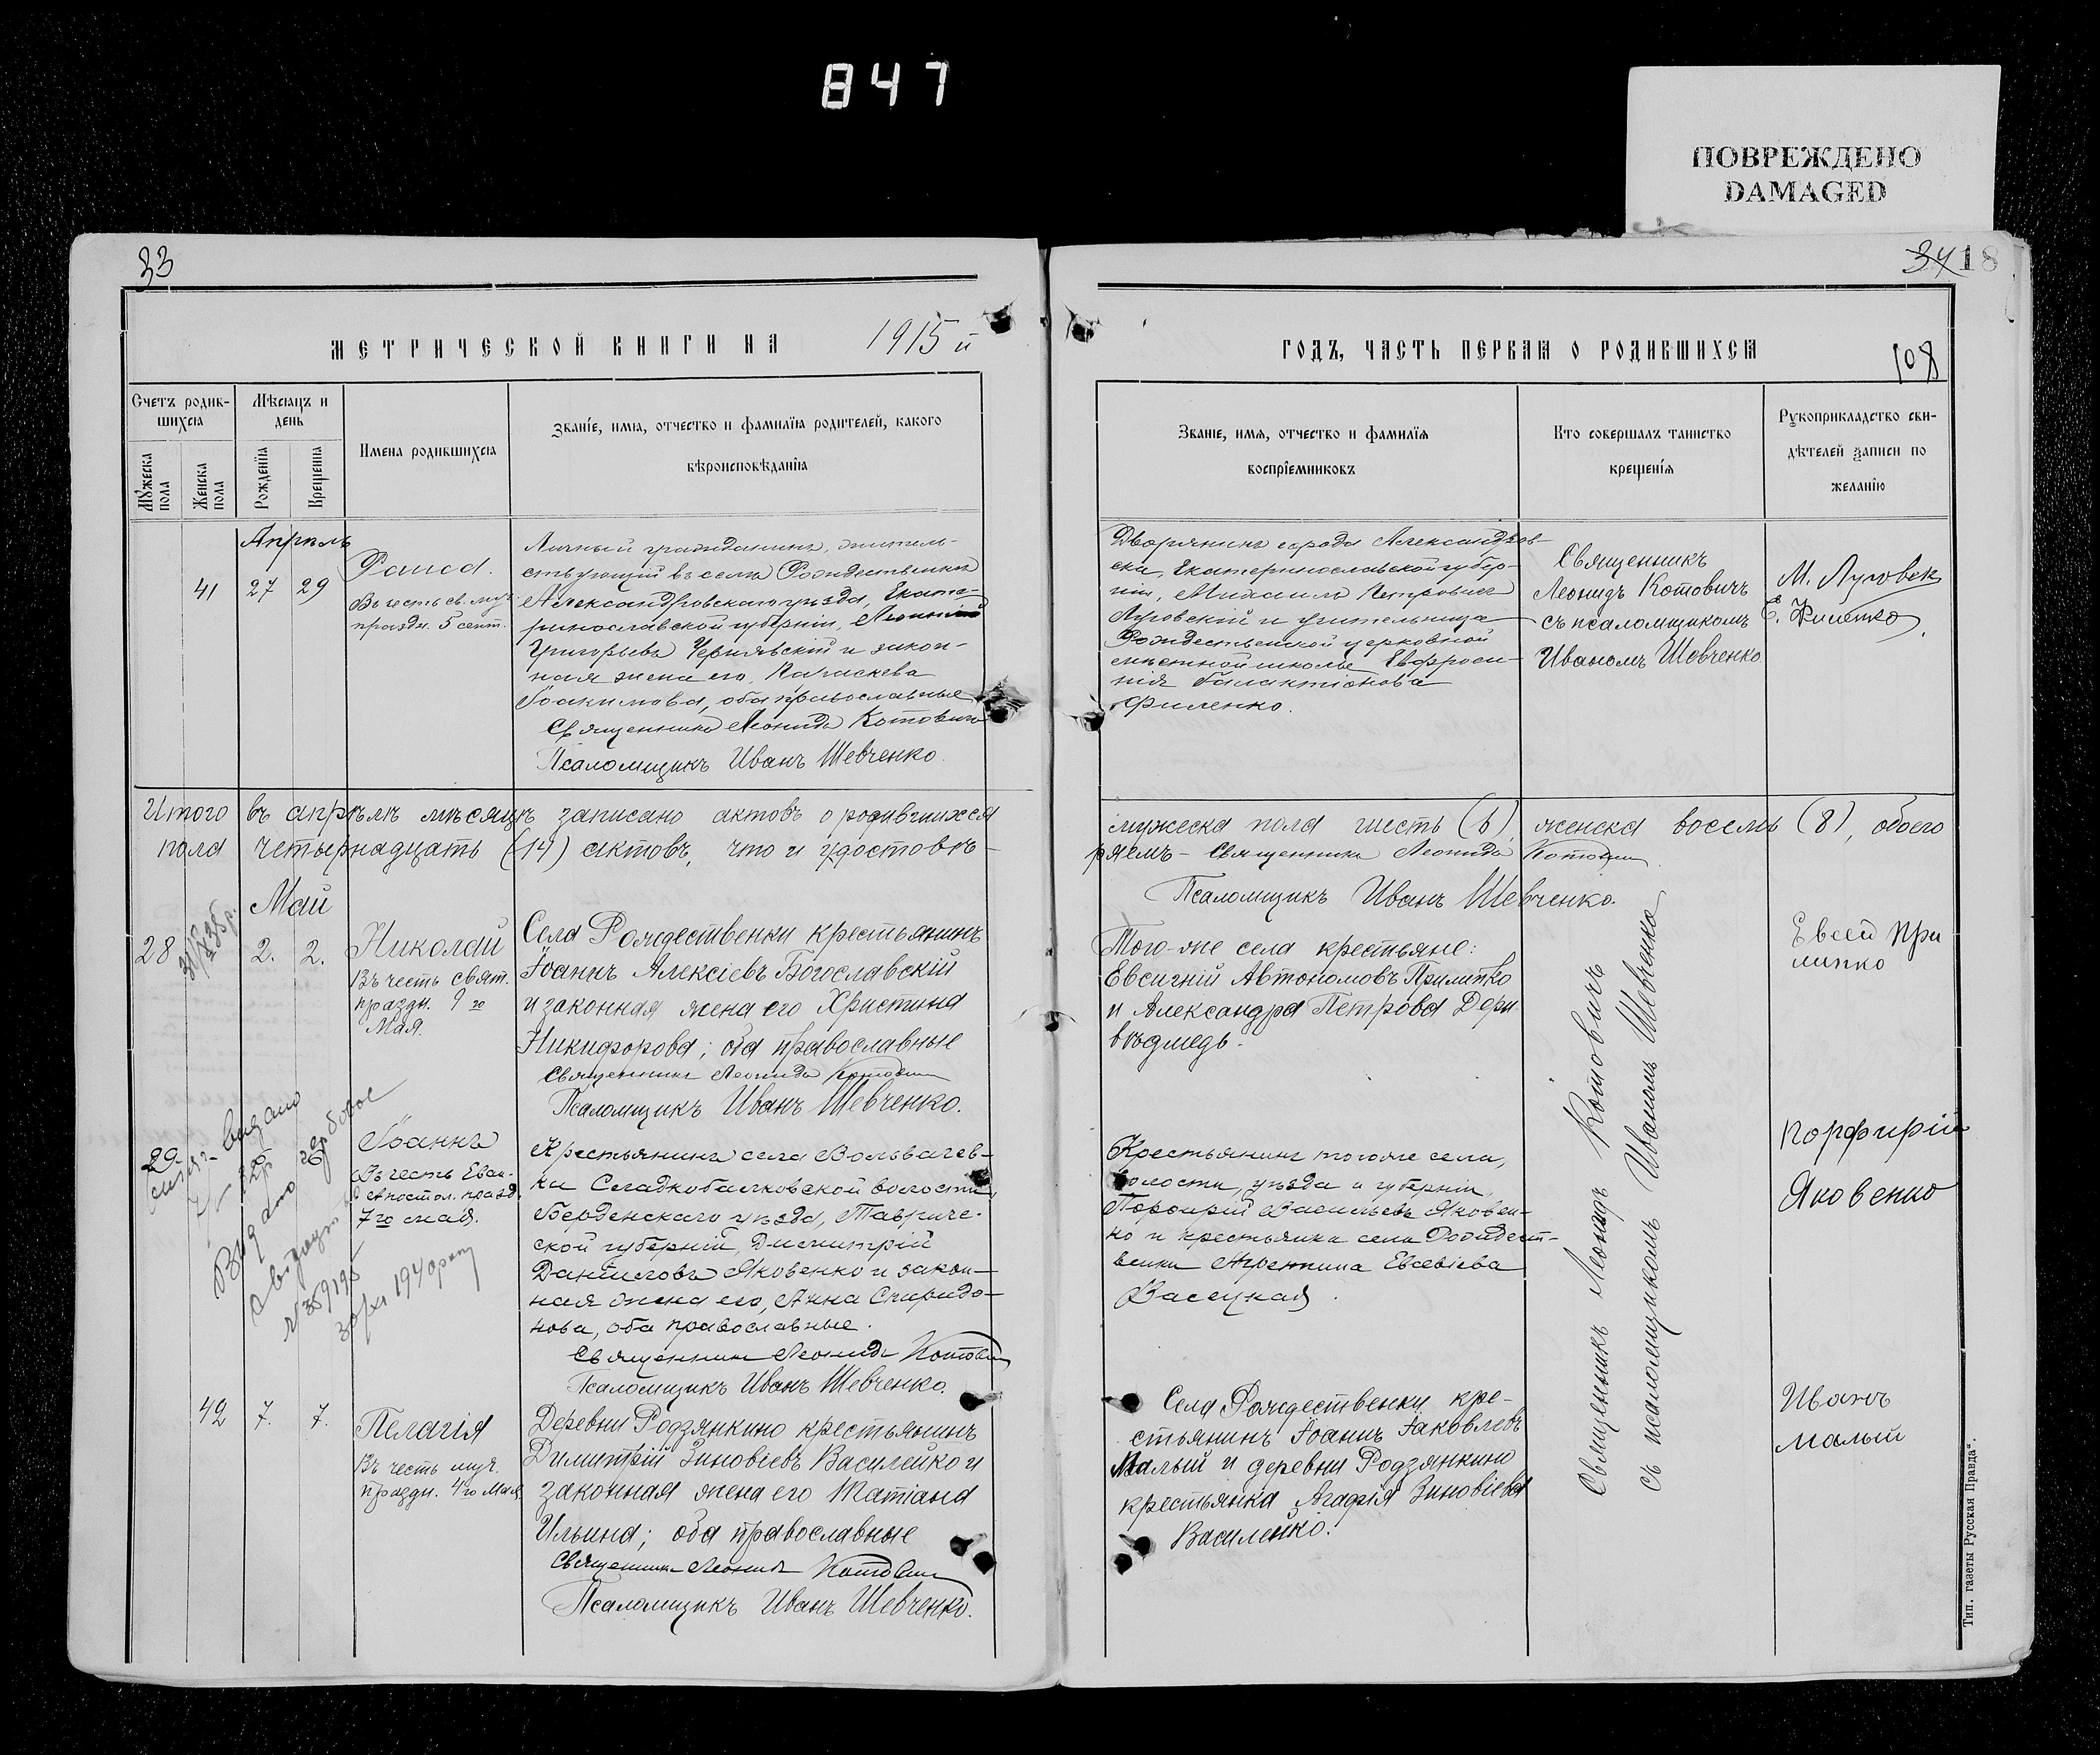 847
ПОВРЕЖДЕНО
DAMAGED
33
МЕТРИЧЕСКОЙ КНИГИ НА 1915 й
Счетъ родив-
шихся
Мѣсяцъ и
день
Мужеска
пола
Женска
пола
Рожденія
Крещенія
Имена родившихся
Званіе, имя, отчество и фамилія родителей, какого
вѣроисповѣданія
Апрѣль
41 27 29
Раиса.
Въ честь св. муч.
праздн. 5 сент.
Личный гражданинъ, житель-
ствующій въ селѣ Рождественкѣ
Александровскаго уѣзда, Екате-
ринославской губерніи, Леонтій
Григорьевъ Чернявскій и закон-
ная жена его, Параскева
Іоакимова, оба православные
Священникъ Леонидъ Котовичъ
Псаломщикъ Иванъ Шевченко.
Итого въ апрѣлѣ мѣсяцѣ записано актовъ о родившихся
пола четырнадцать (14) актовъ, что и удостовѣ-
Май
28 2. 2.
Николай
Въ честь свят.
праздн. 9 го
Мая.
Села Рождественки крестьянинъ
Іоаннъ Алексіевъ Богославскій
и законная жена его Христина
Никифорова; оба православные
Священникъ Леонидъ Котовичъ
Псаломщикъ Иванъ Шевченко.
29
Выдано
Выдано
№ 359195
1940
Іоаннъ
Въ честь Еван.
и Апостол. празд.
7 го мая.
Крестьянинъ села Вольвачев-
ки Сладкобалковской волости,
Бердянскаго уѣзда, Тавриче-
ской губерніи, Димитрій
Даніиловъ Яковенко и закон-
ная жена его, Анна Спиридо-
нова, оба православные.
Священникъ Леонидъ Котовичъ
Псаломщикъ Иванъ Шевченко.
42 7. 7.
Пелагія
Въ честь муч.
праздн. 4 го Мая.
Деревни Родзянкино крестьянинъ
Димитрій Зиновіевъ Василейко и
законная жена его Татіана
Ильина; оба православные
Священникъ Леонидъ Котовичъ
Псаломщикъ Иванъ Шевченко.
34 18
ГОДЪ, ЧАСТЬ ПЕРВАЯ О РОДИВШИХСЯ
108
Званіе, имя, отчество и фамилія
воспріемниковъ
Кто совершалъ таинство
крещенія
Рукоприкладство сви-
дѣтелей записи по
желанію
Дворянинъ города Александров-
ска, Екатеринославской губер-
ніи, Михаилъ Петровичъ
Луговскій и учительница
Рождественской церковной
школы Евфроси-
нія Галактіонова
Филенко.
Священникъ
Леонидъ Котовичъ
съ псаломщикомъ
Иваномъ Шевченко
М. Луговск
Е. Филенко
мужеска пола шесть (6), женска восемь (8), обоего
ряемъ - Священникъ Леонидъ Котовичъ
Псаломщикъ Иванъ Шевченко.
Того-же села крестьяне:
Евсигній Автономовъ Прилипко
и Александра Петрова Дери-
вѣдмедь.
Евсей При
липко
Крестьянинъ того же села,
волости, уѣзда и губерніи,
Порфирій Васильевъ Яковен-
ко и крестьянка села Рождест-
венки Агрепина Евсевіева
Васецкая.
Порфирій
Яковенко
Села Рождественки кре-
стьянинъ Іоаннъ Іаковлевъ
Малый и деревни Родзянкино
крестьянка Агафія Зиновіева
Василейко.
Иванъ
Малый
Священникъ Леонидъ Котовичъ
съ псаломщикомъ Иваномъ Шевченко
Тип. газеты „Русская Правда“.